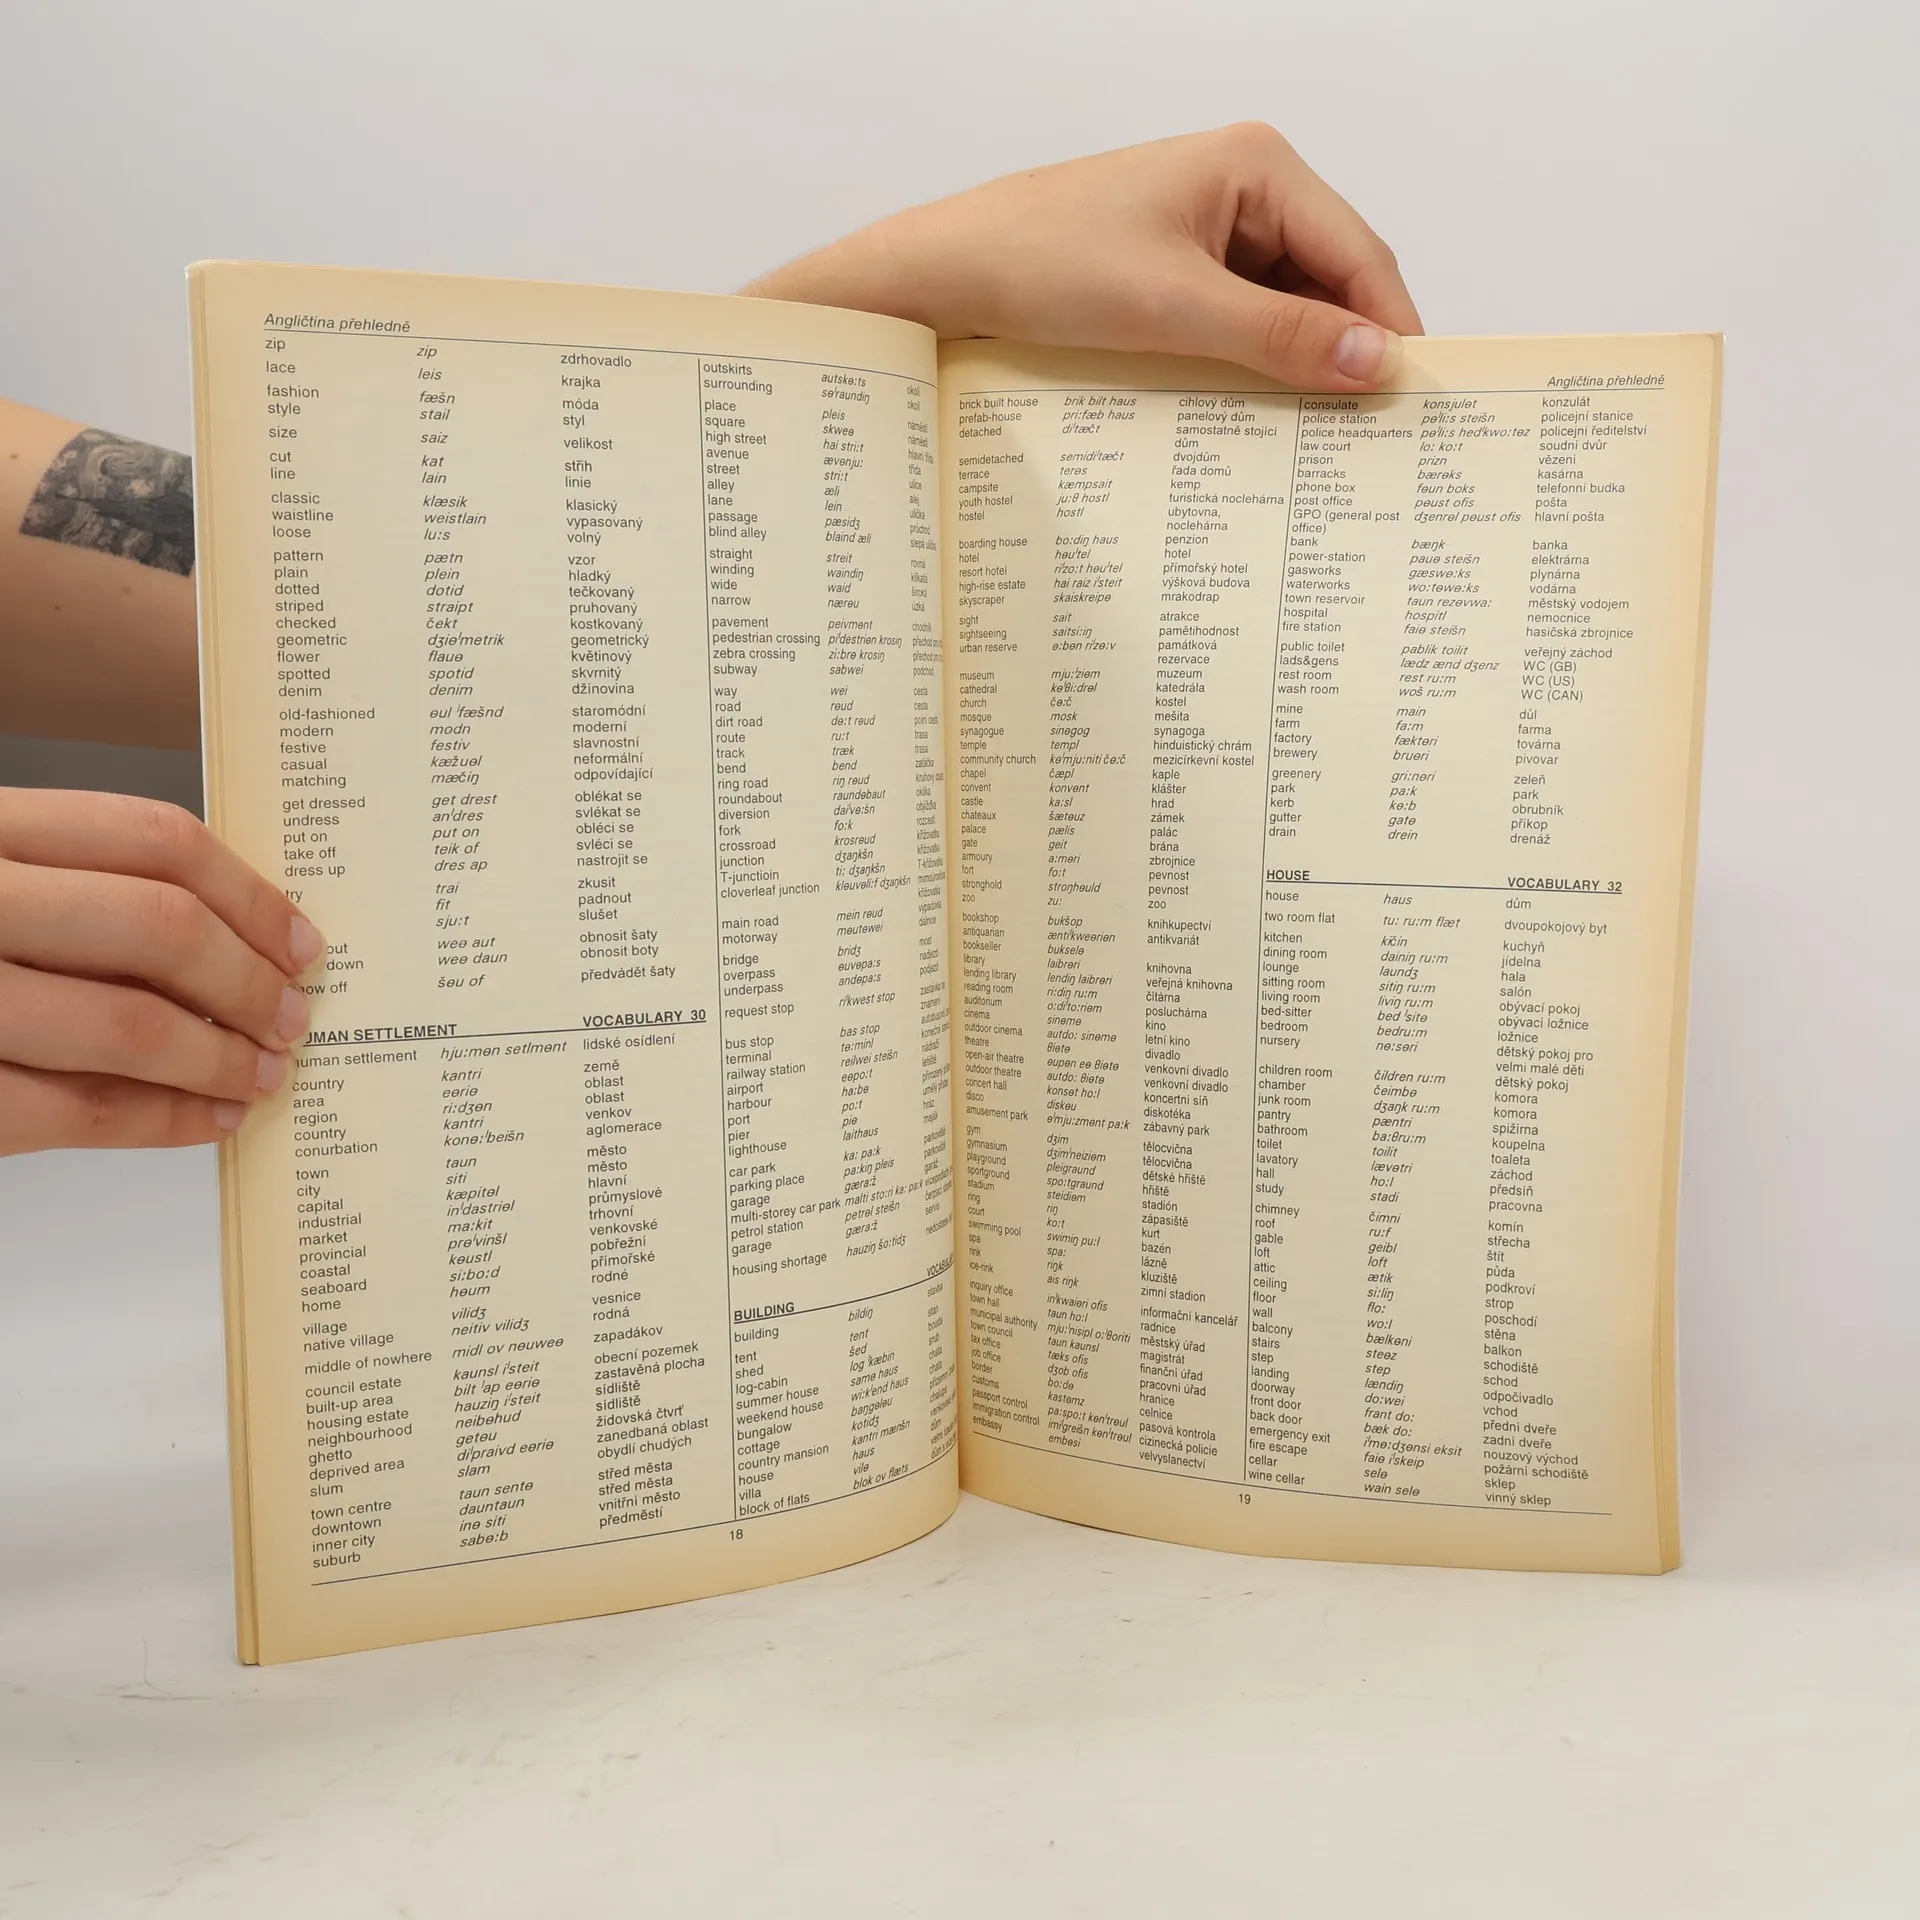 Angličtina přehledně
zip zip zdrhovadlo
lace leis krajka
fashion fæšn móda
style stail styl
size saiz velikost
cut kat střih
line lain linie
classic klæsik klasický
waistline weistlain vypasovaný
loose lu:s volný
pattern pætn vzor
plain plein hladký
dotted dotid tečkovaný
striped straipt pruhovaný
checked čekt kostkovaný
geometric dʒieˈmetrik geometrický
flower flauɵ květinový
spotted spotid skvrnitý
denim denim džínovina
old-fashioned ɵul ˈfæšnd staromódní
modern modn moderní
festive festiv slavnostní
casual kæžuɵl neformální
matching mæčiŋ odpovídající
get dressed get drest oblékat se
undress anˈdres svlékat se
put on put on obléci se
take off teik of svléci se
dress up dres ap nastrojit se
try trai zkusit
fit padnout
sju:t slušet
out weɵ aut obnosit šaty
down weɵ daun obnosit boty
off šɵu of předvádět šaty
SETTLEMENT VOCABULARY 30
settlement hju:mɵn setlmɵnt lidské osídlení
country kantri země
area eɵriɵ oblast
region ri:dʒɵn oblast
country kantri venkov
conurbation konɵ:ˈbeišn aglomerace
town taun město
city siti město
capital kæpitɵl hlavní
industrial inˈdastriɵl průmyslové
market ma:kit trhovní
provincial prɵˈvinšl venkovské
coastal kɵustl pobřežní
seaboard si:bo:d přímořské
home hɵum rodné
village vilidʒ vesnice
native village neitiv vilidʒ rodná
middle of nowhere midl ov nɵuweɵ zapadákov
council estate kaunsl iˈsteit obecní pozemek
built-up area bilt ˈap eɵriɵ zastavěná plocha
housing estate hauziŋ iˈsteit sídliště
neighbourhood neibɵhud sídliště
ghetto getɵu židovská čtvrť
deprived area diˈpraivd eɵriɵ zanedbaná oblast
slum slam obydlí chudých
town centre taun sentɵ střed města
downtown dauntaun střed města
inner city inɵ siti vnitřní město
suburb sabɵ:b předměstí
outskirts autskɵ:ts okolí
surrounding sɵˈraundiŋ okolí
place pleis náměstí
square skweɵ náměstí
high street hai stri:t hlavní třída
avenue ævɵnju: třída
street stri:t ulice
alley æli alej
lane lein ulička
passage pæsidʒ průchod
blind alley blaind æli slepá ulička
straight streit rovná
winding waindiŋ klikatá
wide waid široká
narrow nærɵu úzká
pavement peivmɵnt chodník
pedestrian crossing piˈdestriɵn krosiŋ
zebra crossing zi:brɵ krosiŋ
subway sabwei podchod
way wei cesta
road rɵud cesta
dirt road dɵ:t rɵud polní cesta
route ru:t trasa
track træk trasa
bend bend zatáčka
ring road riŋ rɵud
roundabout raundɵbaut
diversion daiˈvɵ:šn
fork fo:k
crossroad krosrɵud
junction dʒaŋkšn
T-junctioin ti: dʒaŋkšn
cloverleaf junction klɵuvɵli:f dʒaŋkšn
main road mein rɵud
motorway mɵutɵwei
bridge bridʒ
overpass ɵuvɵpa:s
underpass andɵpa:s
request stop riˈkwest stop
bus stop bas stop
terminal tɵ:minl
railway station reilwei steišn
airport eɵpo:t
harbour ha:bɵ
port po:t
pier piɵ
lighthouse laithaus
car park ka: pa:k
parking place pa:kiŋ pleis
garage gæra:ž
multi-storey car park malti sto:ri ka: pa:k
petrol station petrɵl steišn
garage gæra:ž
housing shortage hauziŋ šo:tidʒ
BUILDING
building bildiŋ stavba
tent tent stan
shed šed bouda
log-cabin log ˈkæbin srub
summer house samɵ haus chata
weekend house wi:kˈend haus chata
bungalow baŋgɵlɵu
cottage kotidʒ chalupa
country mansion kantri mænšn
house haus dům
villa vilɵ
block of flats blok ov flæts
18
Angličtina přehledně
brick built house brik bilt haus cihlový dům
prefab-house pri:fæb haus panelový dům
detached diˈtæčt samostatně stojící
dům
semidetached semidiˈtæčt dvojdům
terrace terɵs řada domů
campsite kæmpsait kemp
youth hostel ju:θ hostl turistická noclehárna
hostel hostl ubytovna,
noclehárna
boarding house bo:diŋ haus penzion
hotel hɵuˈtel hotel
resort hotel riˈzo:t hɵuˈtel přímořský hotel
high-rise estate hai raiz iˈsteit výšková budova
skyscraper skaiskreipɵ mrakodrap
sight sait atrakce
sightseeing saitsi:iŋ pamětihodnost
urban reserve ɵ:bɵn riˈzɵ:v památková
rezervace
museum mju:ˈziɵm muzeum
cathedral kɵˈθi:drɵl katedrála
church čɵ:č kostel
mosque mosk mešita
synagogue sinɵgog synagoga
temple templ hinduistický chrám
community church kɵˈmju:niti čɵ:č mezicírkevní kostel
chapel čæpl kaple
convent konvɵnt klášter
castle ka:sl hrad
chateaux šætɵuz zámek
palace pælis palác
gate geit brána
armoury a:mɵri zbrojnice
fort fo:t pevnost
stronghold stroŋhɵuld pevnost
zoo zu: zoo
bookshop bukšop knihkupectví
antiquarian æntiˈkweɵriɵn antikvariát
bookseller bukselɵ
library laibrɵri knihovna
lending library lendiŋ laibrɵri veřejná knihovna
reading room ri:diŋ ru:m čítárna
auditorium o:diˈto:riɵm posluchárna
cinema sinɵmɵ kino
outdoor cinema autdo: sinɵmɵ letní kino
theatre θiɵtɵ divadlo
open-air theatre ɵupɵn eɵ θiɵtɵ venkovní divadlo
outdoor theatre autdo: θiɵtɵ venkovní divadlo
concert hall konsɵt ho:l koncertní síň
disco diskɵu diskotéka
amusement park ɵˈmju:zmɵnt pa:k zábavný park
gym dʒim tělocvična
gymnasium dʒimˈneiziɵm tělocvična
playground pleigraund dětské hřiště
sportground spo:tgraund hřiště
stadium steidiɵm stadión
ring riŋ zápasiště
court ko:t kurt
swimming pool swimiŋ pu:l bazén
spa spa: lázně
rink riŋk kluziště
ice-rink ais riŋk zimní stadion
inquiry office inˈkwaiɵri ofis informační kancelář
town hall taun ho:l radnice
municipal authority mju:ˈnisipl o:ˈθoriti městský úřad
town council taun kaunsl magistrát
tax office tæks ofis finanční úřad
job office dʒob ofis pracovní úřad
border bo:dɵ hranice
customs kastɵmz celnice
passport control pa:spo:t kɵnˈtrɵul pasová kontrola
immigration control imiˈgreišn kɵnˈtrɵul cizinecká policie
embassy embɵsi velvyslanectví
consulate konsjulɵt konzulát
police station pɵˈli:s steišn policejní stanice
police headquarters pɵˈli:s hedˈkwo:tɵz policejní ředitelství
law court lo: ko:t soudní dvůr
prison prizn vězení
barracks bærɵks kasárna
phone box fɵun boks telefonní budka
post office pɵust ofis pošta
GPO (general post dʒenrɵl pɵust ofis hlavní pošta
office)
bank bæŋk banka
power-station pauɵ steišn elektrárna
gasworks gæswɵ:ks plynárna
waterworks wo:tɵwɵ:ks vodárna
town reservoir taun rezɵvwa: městský vodojem
hospital hospitl nemocnice
fire station faiɵ steišn hasičská zbrojnice
public toilet pablik toilit veřejný záchod
lads&gens lædz ænd dʒenz WC (GB)
rest room rest ru:m WC (US)
wash room woš ru:m WC (CAN)
mine main důl
farm fa:m farma
factory fæktɵri továrna
brewery bruɵri pivovar
greenery gri:nɵri zeleň
park pa:k park
kerb kɵ:b obrubník
gutter gatɵ příkop
drain drein drenáž
HOUSE VOCABULARY 32
house haus dům
two room flat tu: ru:m flæt dvoupokojový byt
kitchen kičin kuchyň
dining room dainiŋ ru:m jídelna
lounge laundʒ hala
sitting room sitiŋ ru:m salón
living room liviŋ ru:m obývací pokoj
bed-sitter bed ˈsitɵ obývací ložnice
bedroom bedru:m ložnice
nursery nɵ:sɵri dětský pokoj pro
velmi malé děti
children room čildren ru:m dětský pokoj
chamber čeimbɵ komora
junk room dʒaŋk ru:m komora
pantry pæntri spižírna
bathroom ba:θru:m koupelna
toilet toilit toaleta
lavatory lævɵtri záchod
hall ho:l předsíň
study stadi pracovna
chimney čimni komín
roof ru:f střecha
gable geibl štít
loft loft půda
attic ætik podkroví
ceiling si:liŋ strop
floor flo: poschodí
wall wo:l stěna
balcony bælkɵni balkon
stairs steɵz schodiště
step step schod
landing lændiŋ odpočívadlo
doorway do:wei vchod
front door frant do: přední dveře
back door bæk do: zadní dveře
emergency exit iˈmɵ:dʒɵnsi eksit nouzový východ
fire escape faiɵ iˈskeip požární schodiště
cellar selɵ sklep
wine cellar wain selɵ vinný sklep
19